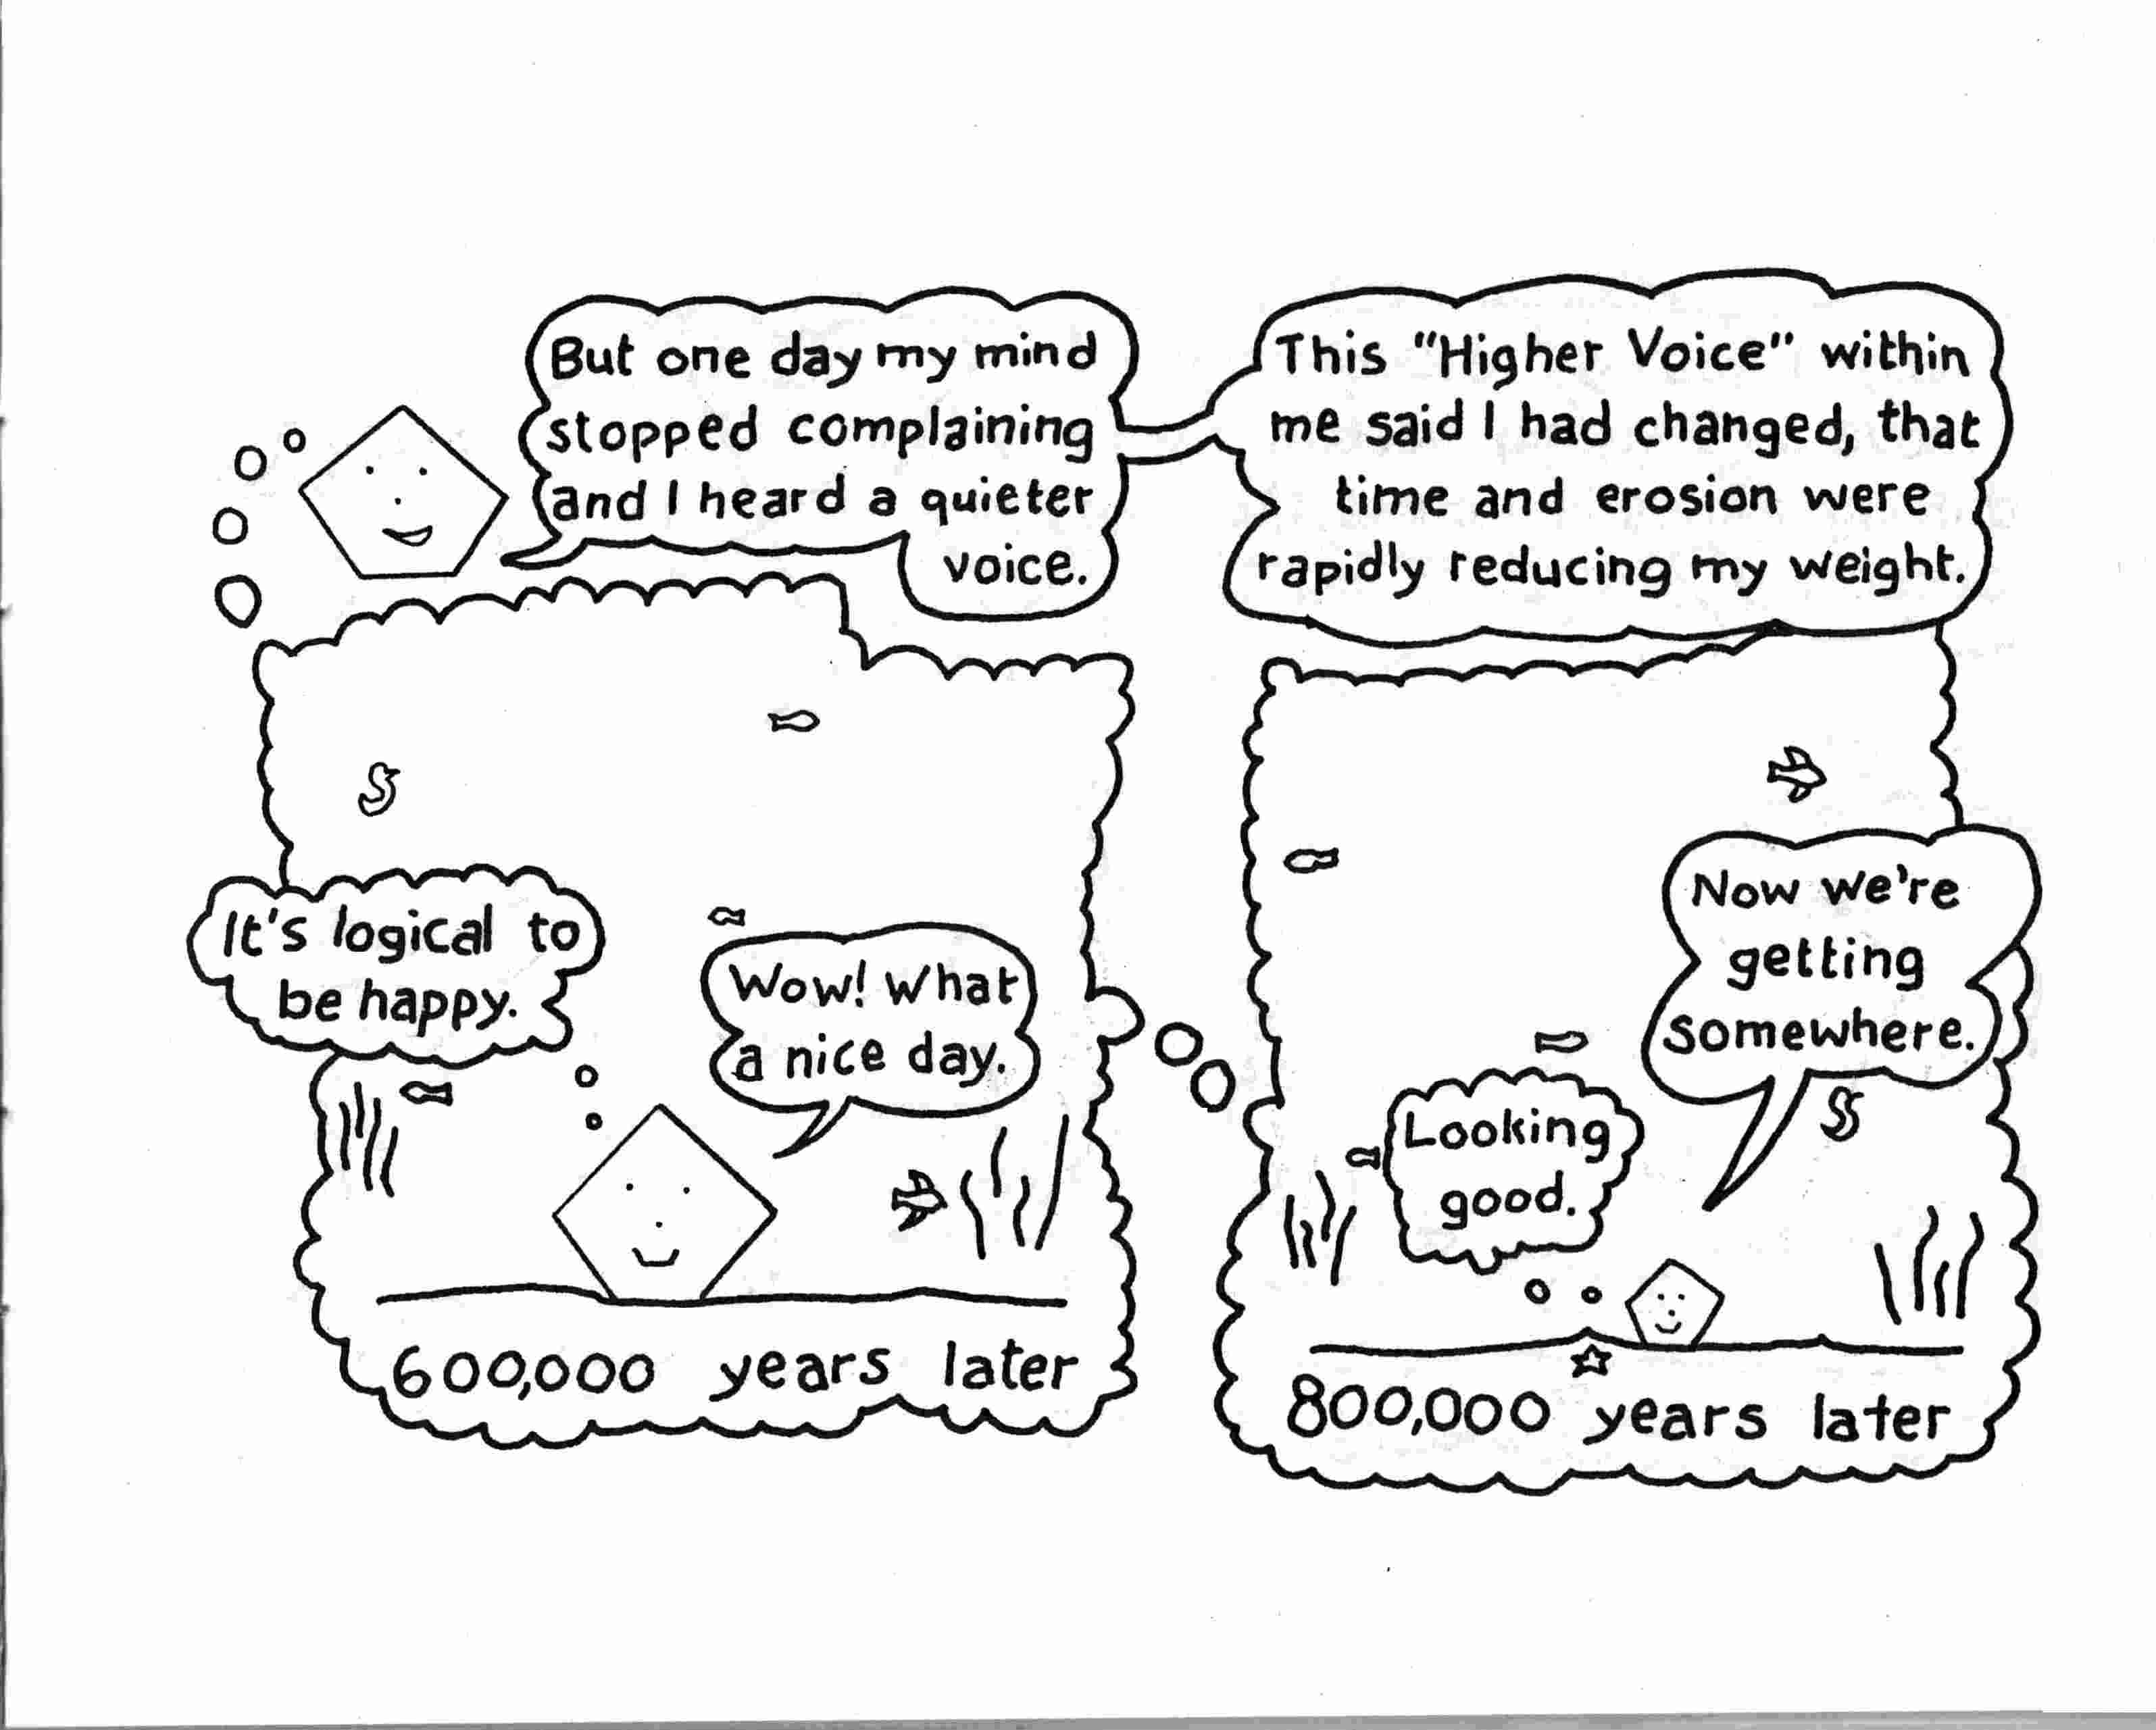 But one day my mind
stopped complaining
and I heard a quieter
voice.
This "Higher Voice" within
me said I had changed, that
time and erosion were
rapidly reducing my weight.
It's logical to
be happy.
Wow! What
a nice day.
600,000 years later
Now we're
getting
somewhere.
Looking
good.
800,000 years later